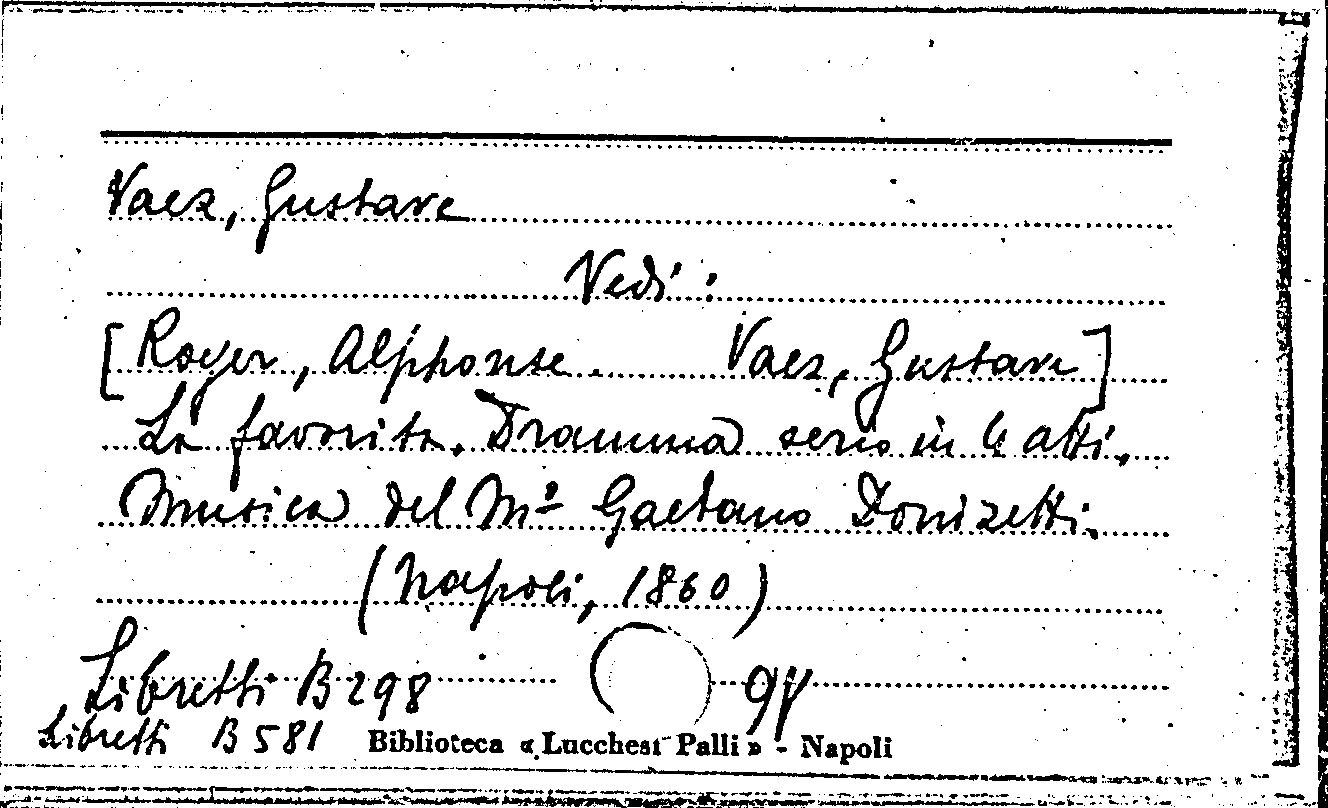 Vaez, Gustave
Vedi:
[Royer, Alphonse. Vaez, Gustave]
La favorita. Dramma serio in 4 atti.
Musica del Mº Gaetano Donizetti.
(Napoli, 1860)
Libretti B 298
Libretti B 581
Biblioteca « Lucchesi Palli » - Napoli